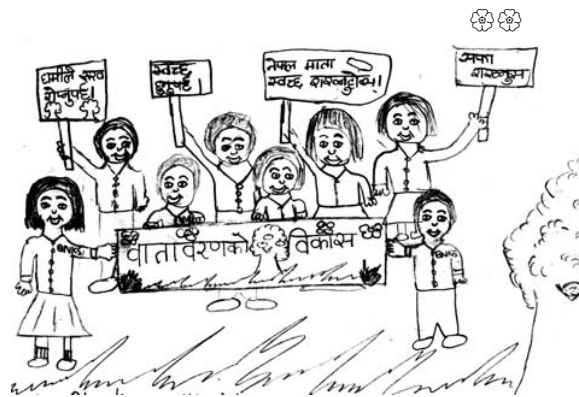 रुख
स्वच्छ
हुनुपर्छ।
नेपाल माता
स्वच्छ राख्नुहोस्!
सफा
राख्नुस
वातावरणको विकास
BNKS
BNKS